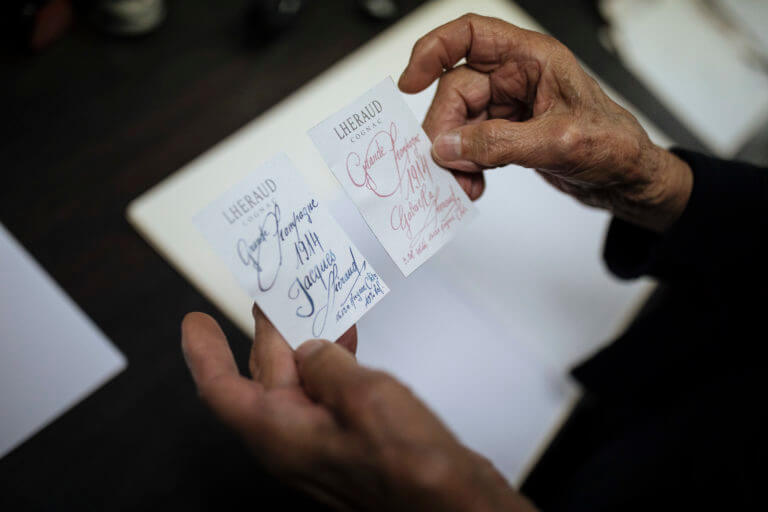 LHERAUD
COGNAC
Grande Champagne
1914
Jacques
Lheraud
LHERAUD
COGNAC
Grande Champagne
1914
Gabriella
Lheraud